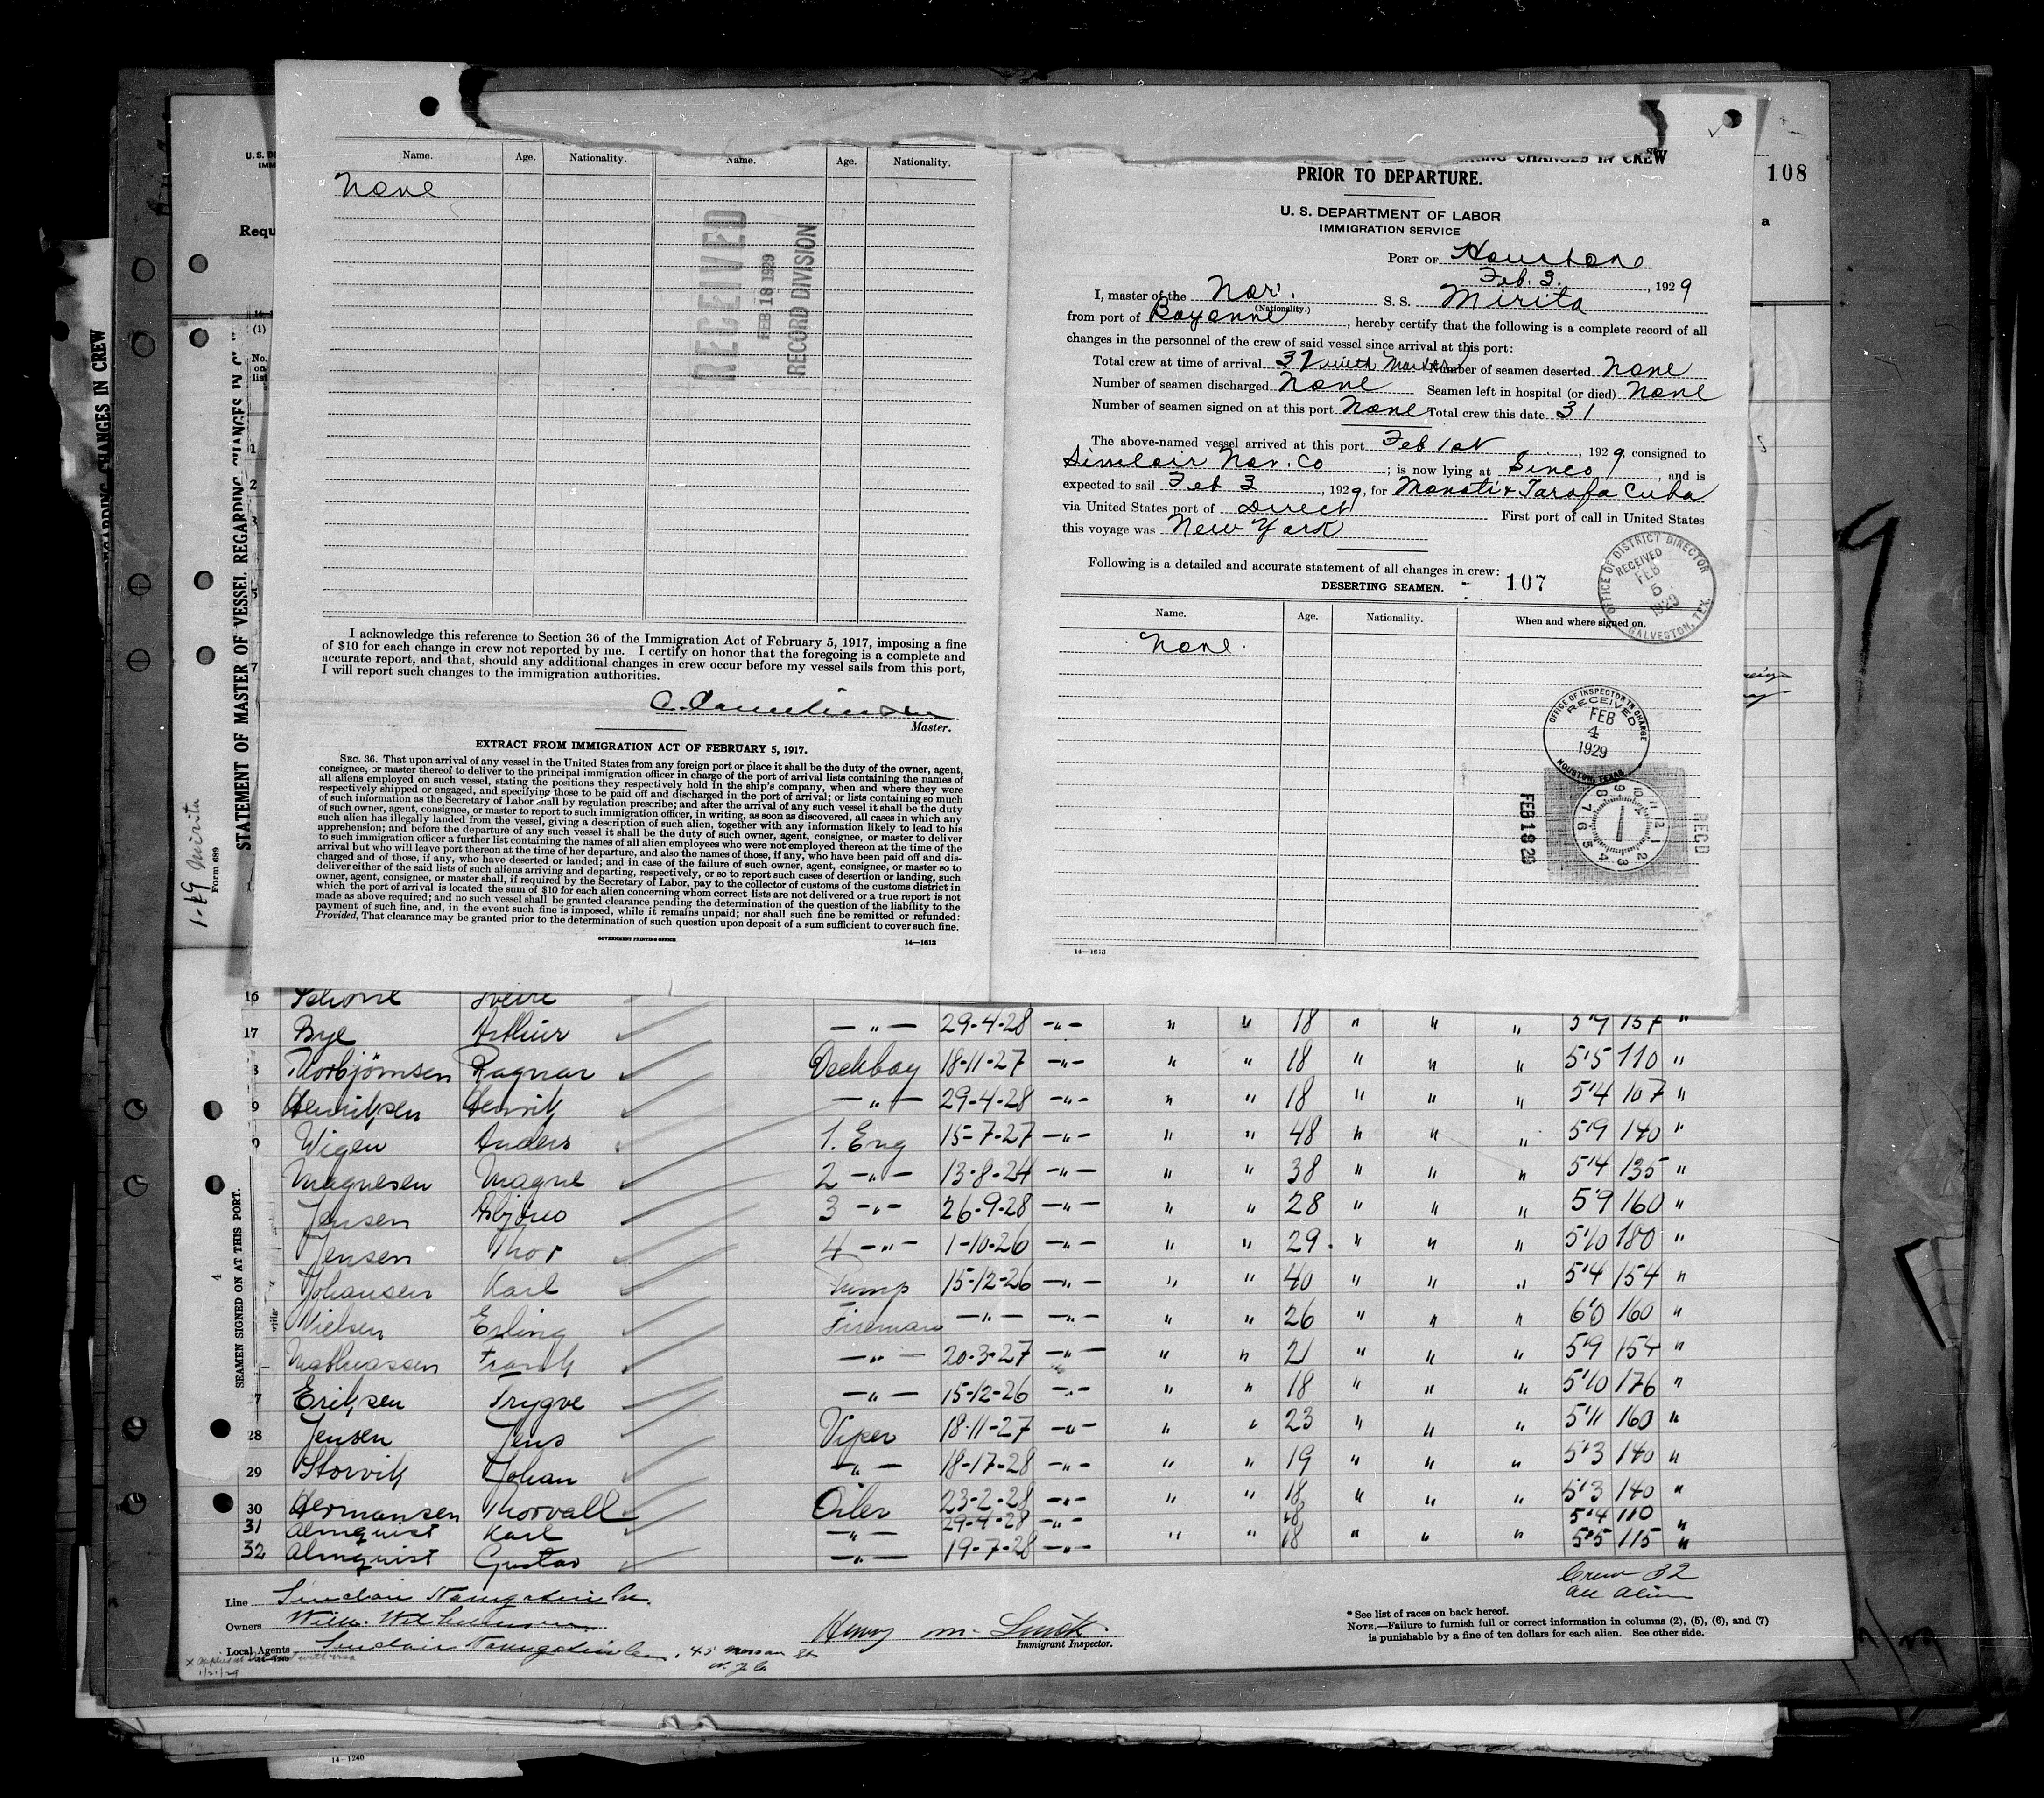 Name. Age. Nationality. Name. Age. Nationality.
None
RECEIVED
FEB 18 1929
RECORD DIVISION
I acknowledge this reference to Section 36 of the Immigration Act of February 5, 1917, imposing a fine
of $10 for each change in crew not reported by me. I certify on honor that the foregoing is a complete and
accurate report, and that, should any additional changes in crew occur before my vessel sails from this port,
I will report such changes to the immigration authorities.
Master.
EXTRACT FROM IMMIGRATION ACT OF FEBRUARY 5, 1917.
SEC. 36. That upon arrival of any vessel in the United States from any foreign port or place it shall be the duty of the owner, agent,
consignee, or master thereof to deliver to the principal immigration officer in charge of the port of arrival lists containing the names of
all aliens employed on such vessel, stating the positions they respectively hold in the ship's company, when and where they were
respectively shipped or engaged, and specifying those to be paid off and discharged in the port of arrival; or lists containing so much
of such information as the Secretary of Labor shall by regulation prescribe; and after the arrival of any such vessel it shall be the duty
of such owner, agent, consignee, or master to report to such immigration officer, in writing, as soon as discovered, all cases in which any
such alien has illegally landed from the vessel, giving a description of such alien, together with any information likely to lead to his
apprehension; and before the departure of any such vessel it shall be the duty of such owner, agent, consignee, or master to deliver
to such immigration officer a further list containing the names of all alien employees who were not employed thereon at the time of the
arrival but who will leave port thereon at the time of her departure, and also the names of those, if any, who have been paid off and dis-
charged and of those, if any, who have deserted or landed; and in case of the failure of such owner, agent, consignee, or master so to
deliver either of the said lists of such aliens arriving and departing, respectively, or so to report such cases of desertion or landing, such
owner, agent, consignee, or master shall, if required by the Secretary of Labor, pay to the collector of customs of the customs district in
which the port of arrival is located the sum of $10 for each alien concerning whom correct lists are not delivered or a true report is not
made as above required; and no such vessel shall be granted clearance pending the determination of the question of the liability to the
payment of such fine, and, in the event such fine is imposed, while it remains unpaid; nor shall such fine be remitted or refunded:
Provided, That clearance may be granted prior to the determination of such question upon deposit of a sum sufficient to cover such fine.
GOVERNMENT PRINTING OFFICE 14—1613
CHANGES IN CREW
PRIOR TO DEPARTURE.
108
U. S. DEPARTMENT OF LABOR
IMMIGRATION SERVICE
PORT OF Houston
Feb. 3, 1929
I, master of the Nor. S. S. Mirita
(Nationality.)
from port of Bayonne, hereby certify that the following is a complete record of all
changes in the personnel of the crew of said vessel since arrival at this port:
Total crew at time of arrival 31 with Master Number of seamen deserted None
Number of seamen discharged None Seamen left in hospital (or died) None
Number of seamen signed on at this port None Total crew this date 31
The above-named vessel arrived at this port Feb 1st, 1929, consigned to
Sinclair Nav. Co; is now lying at Sinco, and is
expected to sail Feb 3, 1929, for Manati & Tarafa Cuba
via United States port of Direct First port of call in United States
this voyage was New York
Following is a detailed and accurate statement of all changes in crew:
DESERTING SEAMEN. 107
OFFICE OF DISTRICT DIRECTOR
RECEIVED
FEB
5
1929
GALVESTON, TEX.
Name. Age. Nationality. When and where signed on.
None
OFFICE OF INSPECTOR IN CHARGE
RECEIVED
FEB
4
1929
HOUSTON, TEXAS
FEB 18 29
REC'D
14—1613
STATEMENT OF MASTER OF VESSEL REGARDING CHANGES IN CREW
Form 689
Mirita
4
SEAMEN SIGNED ON AT THIS PORT.
Requ
(1)
No. on list
16
17 Bye Arthur —"— 29-4-28 —"— " " 18 " " " 5'9 157 "
Thorbjørnsen Ragnar Deckboy 18-11-27 —"— " " 18 " " " 5'5 110 "
Henriksen Henrik —"— 29-4-28 —"— " " 18 " " " 5'4 107 "
Wigen Anders 1. Eng 15-7-27 —"— " " 48 " " " 5'9 140 "
Magnesen Magne 2 —"— 13-8-24 —"— " " 38 " " " 5'4 135 "
Jensen Asbjørn 3 —"— 26-9-28 —"— " " 28 " " " 5'9 160 "
Jensen Thor 4 —"— 1-10-26 —"— " " 29 " " " 5'10 180 "
Johansen Karl Pump 15-12-26 —"— " " 40 " " " 5'4 154 "
Nielsen Erling Fireman —"— —"— " " 26 " " " 6'0 160 "
Mathiassen Frank —"— 20-3-27 —"— " " 21 " " " 5'9 154 "
Eriksen Trygve —"— 15-12-26 —"— " " 18 " " " 5'10 176 "
28 Jensen Jens Viper 18-11-27 —"— " " 23 " " " 5'11 160 "
29 Storvik Johan —"— 18-17-28 —"— " " 19 " " " 5'3 140 "
30 Hermansen Thorvall Oiler 23-2-28 —"— " " 18 " " " 5'3 140 "
31 Almquist Karl —"— 29-4-28 —"— 18 5'4 110 "
32 Almquist Gustav —"— 19-7-28 —"— " " 18 " " " 5'5 115 "
Crew 32
All Alien
Line Sinclair Navigation Co.
Owners Wilh. Wilhelmsen
Local Agents Sinclair Navigation Co., 45 Nassau St
N.Y.C.
Henry M. Smick
Immigrant Inspector.
* See list of races on back hereof.
NOTE.—Failure to furnish full or correct information in columns (2), (5), (6), and (7)
is punishable by a fine of ten dollars for each alien. See other side.
14—1240